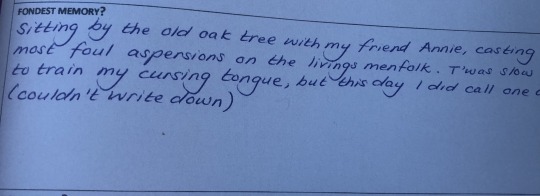 FONDEST MEMORY?
Sitting by the old oak tree with my friend Annie, casting
most foul aspersions on the livings menfolk. T'was slow
to train my cursing tongue, but this day I did call one
(couldn't write down)